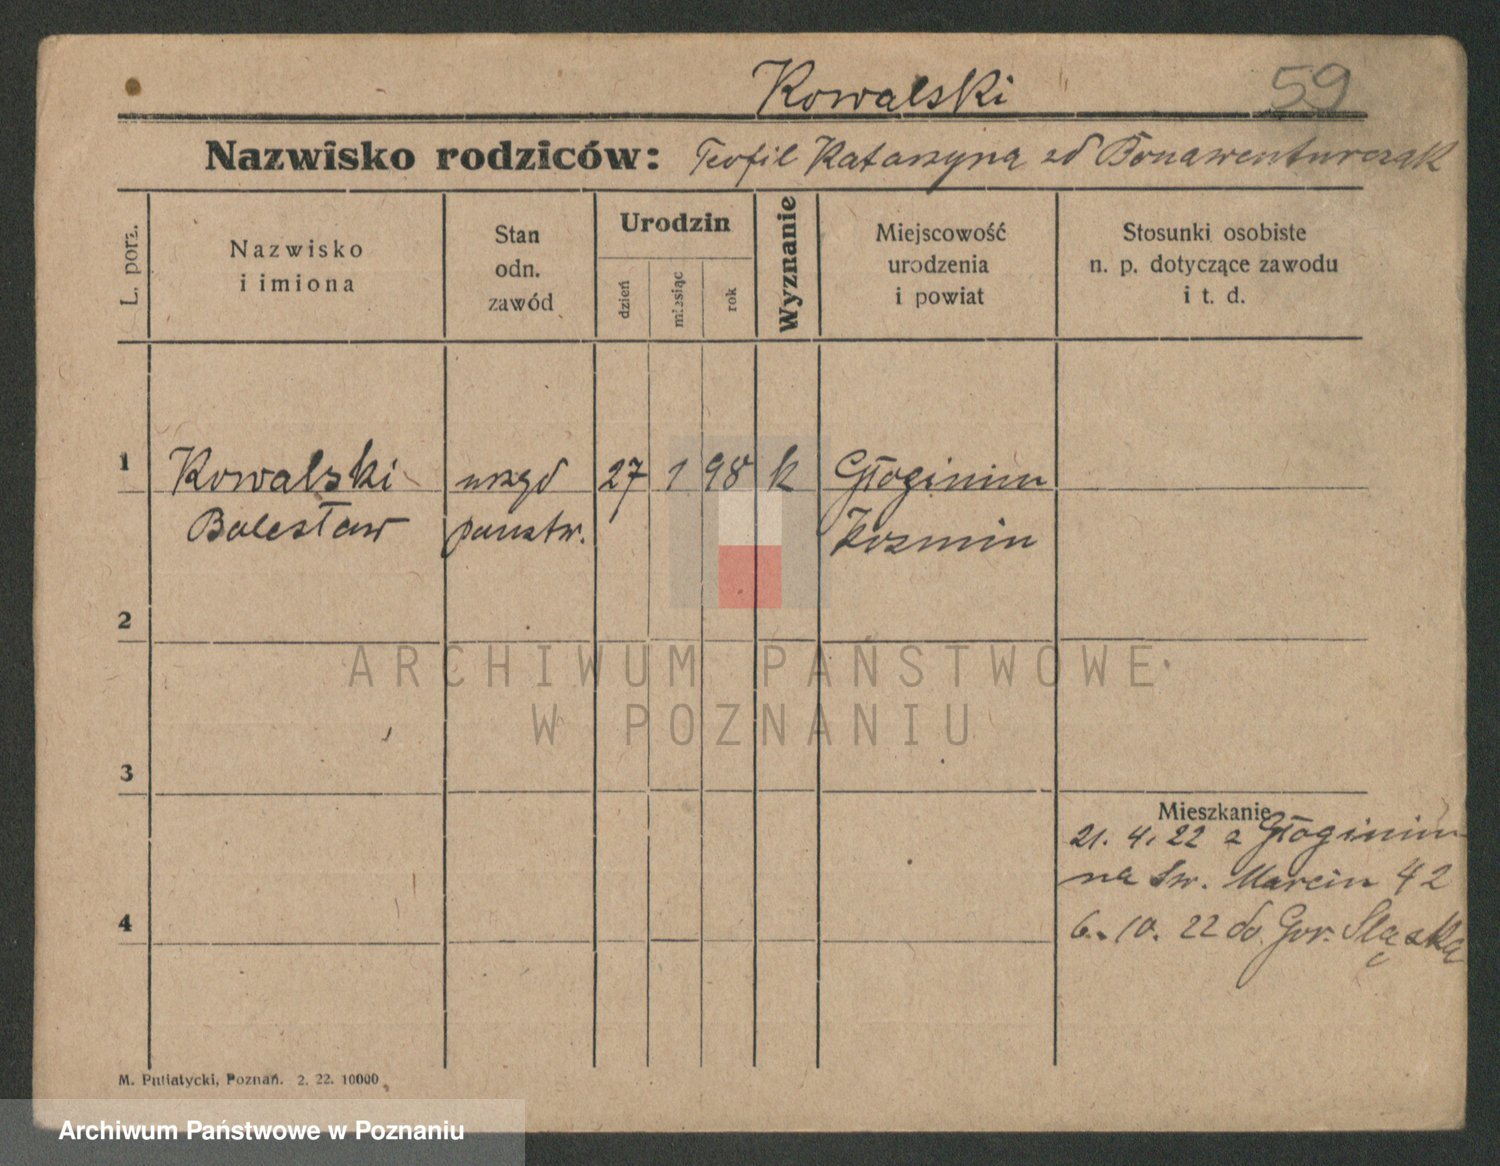 Kowalski 59
Nazwisko rodziców: Teofil Katarzyna zd Bonawenturczak
L. porz.
Nazwisko i imiona
Stan odn. zawód
Urodzin
dzień
miesiąc
rok
Wyznanie
Miejscowość urodzenia i powiat
Stosunki osobiste n. p. dotyczące zawodu i t. d.
1 Kowalski urzęd 27 1 98 k Głoginin
Bolesław państw. Kozmin
2
3
Mieszkanie
21. 4. 22 z Głoginin
na Św. Marcin 42
4
6. 10. 22 do Gor. Śląska
M. Putiatycki, Poznań. 2. 22. 10000
ARCHIWUM PAŃSTWOWE
W POZNANIU
Archiwum Państwowe w Poznaniu